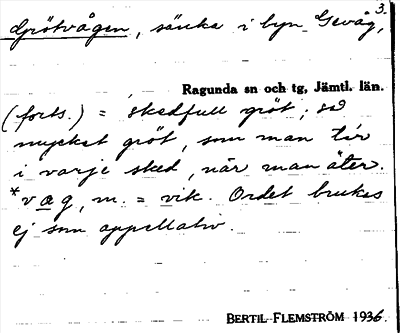 3.
Grötvågen, sänka i byn Gevåg,
Ragunda sn och tg, Jämtl. län.
(forts.) = skedfull gröt; så
mycket gröt, som man tar
i varje sked, när man äter.
*våg, m. = vik. Ordet brukas
ej som appellativ.
BERTIL FLEMSTRÖM 1936.